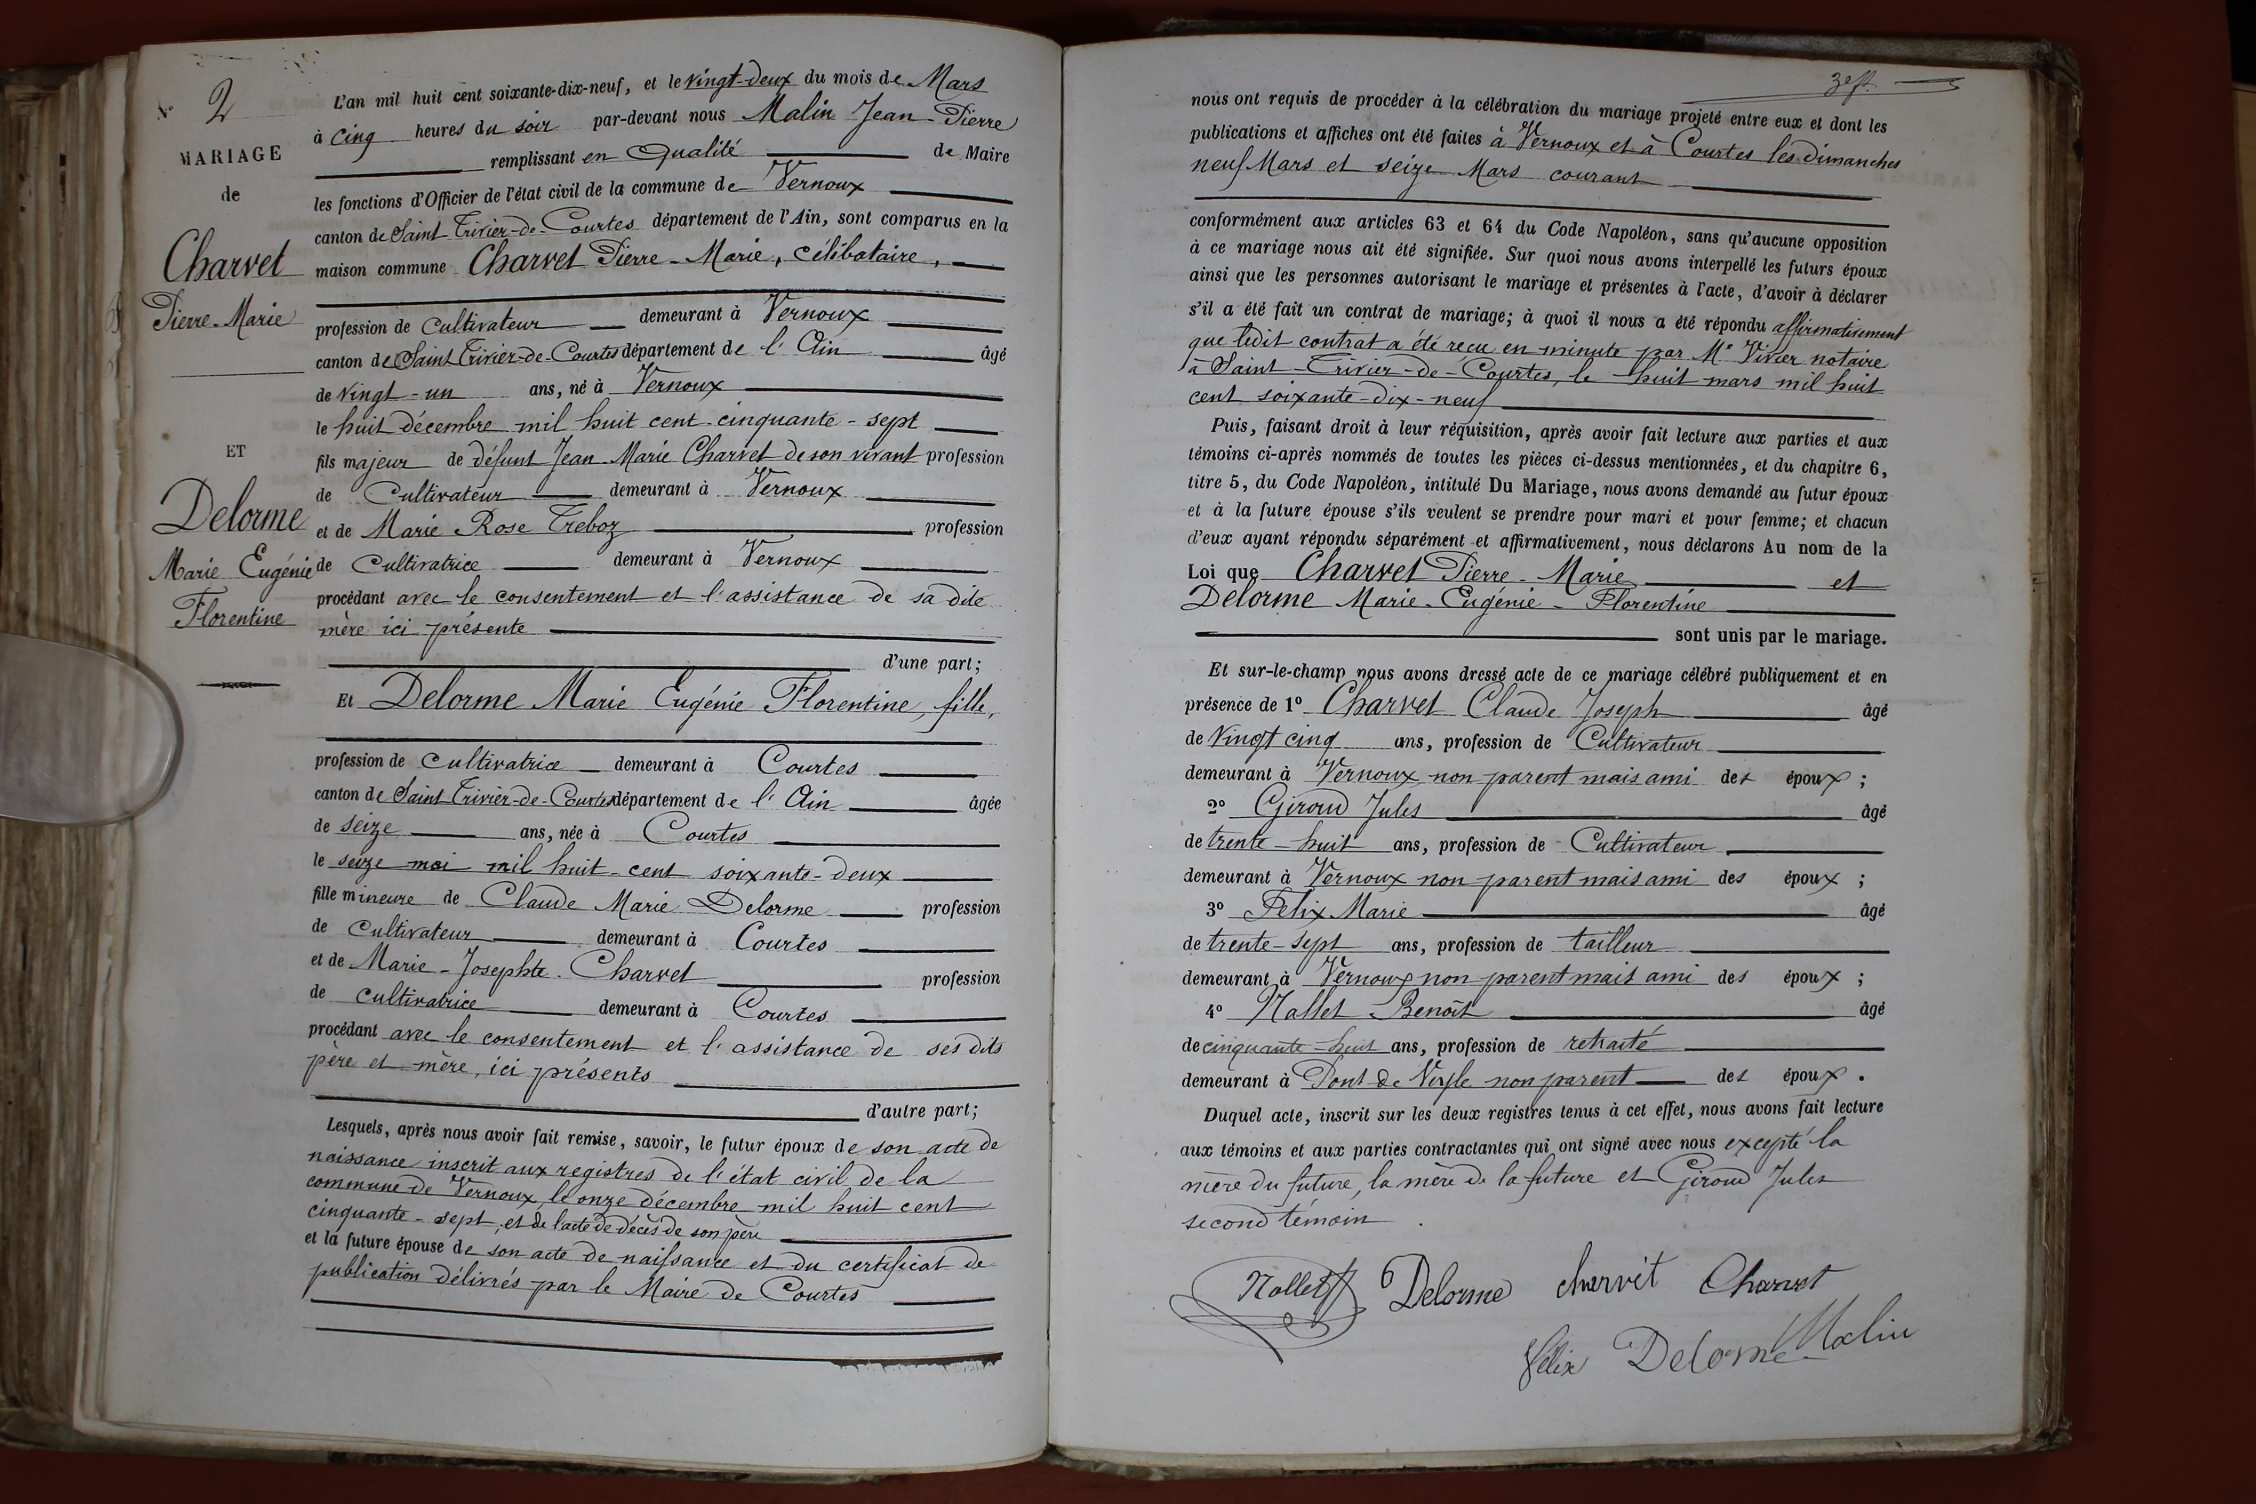 N° 2
MARIAGE
de
Charvet
Pierre-Marie
ET
Delorme
Marie Eugénie
Florentine
L'an mil huit cent soixante-dix-neuf, et le vingt-deux du mois de Mars
à cinq heures du soir par-devant nous Malin Jean-Pierre
remplissant en qualité de Maire
les fonctions d'Officier de l'état civil de la commune de Vernoux
canton de Saint Trivier-de-Courtes département de l'Ain, sont comparus en la
maison commune Charvet Pierre-Marie, célibataire,
profession de cultivateur demeurant à Vernoux
canton de Saint Trivier-de-Courtes département de l'Ain âgé
de vingt-un ans, né à Vernoux
le huit décembre mil huit cent cinquante-sept
fils majeur de défunt Jean Marie Charvet de son vivant profession
de Cultivateur demeurant à Vernoux
et de Marie Rose Treboz profession
de Cultivatrice demeurant à Vernoux
procédant avec le consentement et l'assistance de sa dite
mère ici présente
d'une part;
Et Delorme Marie Eugénie Florentine, fille,
profession de cultivatrice demeurant à Courtes
canton de Saint Trivier-de-Courtes département de l'Ain âgée
de seize ans, née à Courtes
le seize mai mil huit-cent soixante-deux
fille mineure de Claude Marie Delorme profession
de cultivateur demeurant à Courtes
et de Marie-Josephte Charvet profession
de cultivatrice demeurant à Courtes
procédant avec le consentement et l'assistance de ses dits
père et mère, ici présents
d'autre part;
Lesquels, après nous avoir fait remise, savoir, le futur époux de son acte de
naissance inscrit aux registres de l'état civil de la
commune de Vernoux, le onze décembre mil huit cent
cinquante-sept, et de l'acte de décès de son père
et la future épouse de son acte de naissance et du certificat de
publication délivrés par le Maire de Courtes
nous ont requis de procéder à la célébration du mariage projeté entre eux et dont les
publications et affiches ont été faites à Vernoux et à Courtes les dimanches
neuf Mars et seize Mars courant
conformément aux articles 63 et 64 du Code Napoléon, sans qu'aucune opposition
à ce mariage nous ait été signifiée. Sur quoi nous avons interpellé les futurs époux
ainsi que les personnes autorisant le mariage et présentes à l'acte, d'avoir à déclarer
s'il a été fait un contrat de mariage; à quoi il nous a été répondu affirmativement
que ledit contrat a été reçu en minute par Me Vivier notaire
à Saint-Trivier-de-Courtes, le huit mars mil huit
cent soixante-dix-neuf
Puis, faisant droit à leur réquisition, après avoir fait lecture aux parties et aux
témoins ci-après nommés de toutes les pièces ci-dessus mentionnées, et du chapitre 6,
titre 5, du Code Napoléon, intitulé Du Mariage, nous avons demandé au futur époux
et à la future épouse s'ils veulent se prendre pour mari et pour femme; et chacun
d'eux ayant répondu séparément et affirmativement, nous déclarons Au nom de la
Loi que Charvet Pierre-Marie et
Delorme Marie-Eugénie-Florentine
sont unis par le mariage.
Et sur-le-champ nous avons dressé acte de ce mariage célébré publiquement et en
présence de 1° Charvet Claude Joseph âgé
de vingt cinq ans, profession de Cultivateur
demeurant à Vernoux non parent mais ami des époux;
2° Giroud Jules âgé
de trente-huit ans, profession de Cultivateur
demeurant à Vernoux non parent mais ami des époux;
3° Felix Marie âgé
de trente-sept ans, profession de tailleur
demeurant à Vernoux non parent mais ami des époux;
4° Nallet Benoît âgé
de cinquante-huit ans, profession de retraité
demeurant à Pont de Veyle non parent des époux.
Duquel acte, inscrit sur les deux registres tenus à cet effet, nous avons fait lecture
aux témoins et aux parties contractantes qui ont signé avec nous excepté la
mère du future, la mère de la future et Giroud Jules
second témoin.
Nallet Delorme charvet Charvet
Félix Delorme Malin